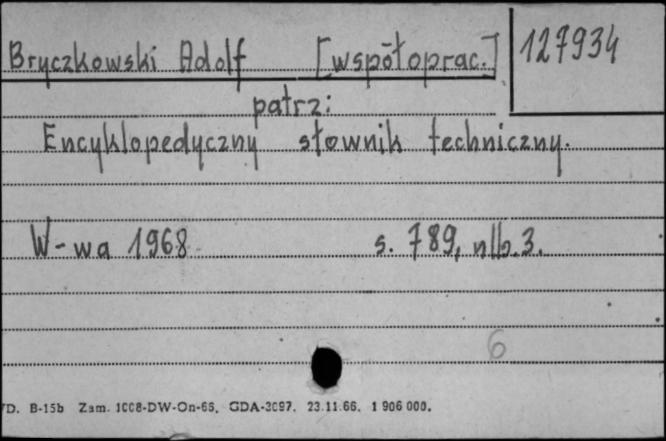 Bryczkowski Adolf [współoprac.] 127934
patrz:
Encyklopedyczny słownik techniczny.
W-wa 1968 s. 789, nlb. 3.
6
D. B-15b Zam. 1008-DW-On-66. GDA-3097. 23.11.66. 1 906 000.